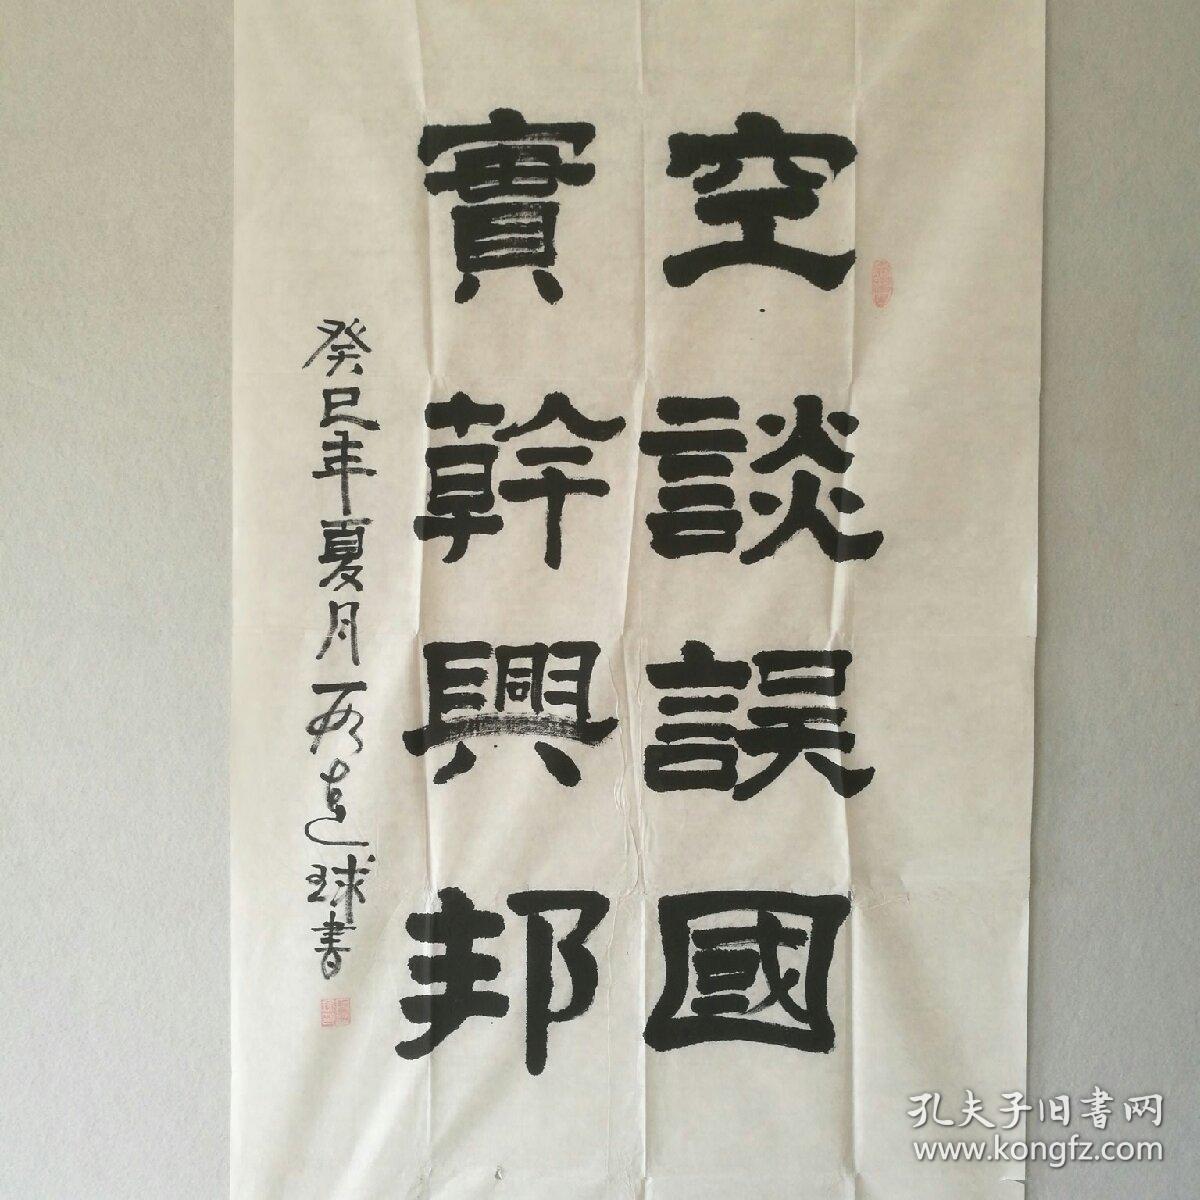 空談誤國
實幹興邦
癸巳年夏月 球書
孔夫子旧书网
www.kongfz.com